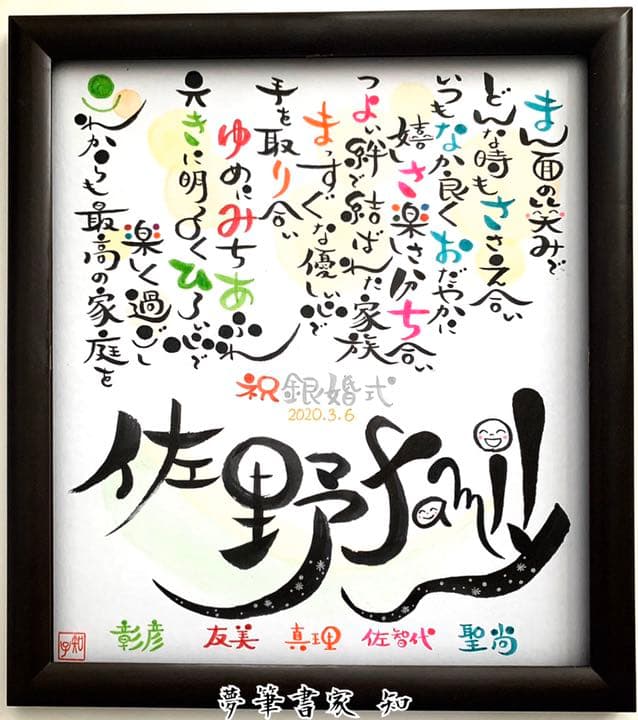 まん面の笑みで
どんな時もささえ合い
いつもなか良くおだやかに
嬉しさ楽しさ分ち合い
つよい絆で結ばれた家族
まっすぐな優しい心で
手を取り合い
ゆめにみちあふれ
元きに明るくひろい心で
楽しく過ごし
これからも最高の家庭を
祝銀婚式
2020.3.6
佐野family
彰彦 友美 真理 佐智代 聖尚
知
夢筆書家 知